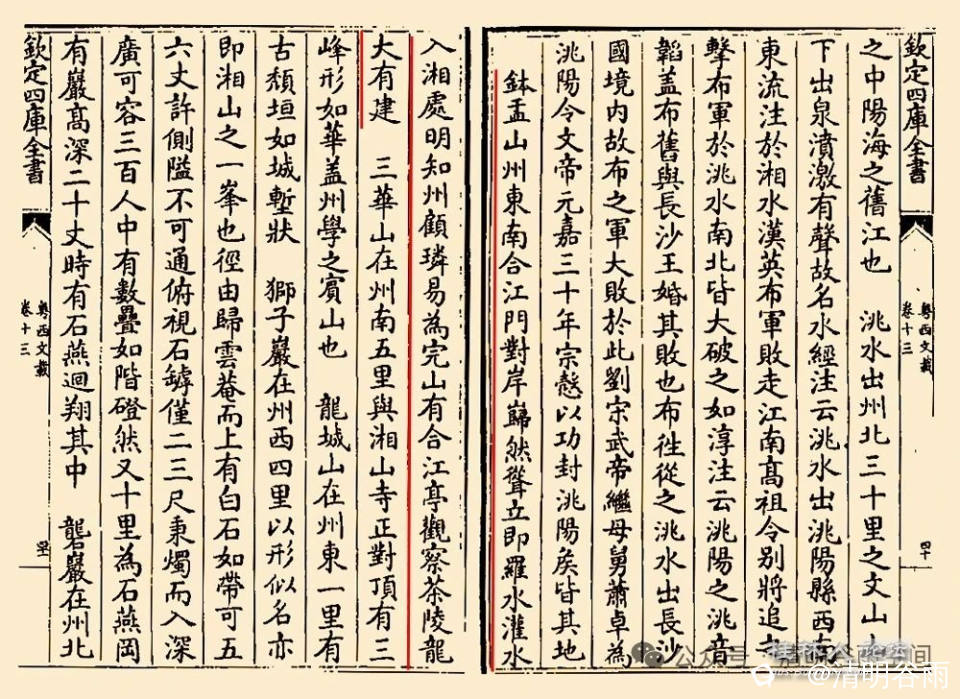 欽定四庫全書
粤西文載
卷十三
四十
之中陽海之舊江也　洮水出州北三十里之文山山
下出泉濆激有聲故名水經注云洮水出洮陽縣西南
東流注於湘水漢英布軍敗走江南髙祖令别將追
擊布軍於洮水南北皆大破之如淳注云洮陽之洮音
韜盖布舊與長沙王婚其敗也布徃從之洮水出長沙
國境内故布之軍大敗於此劉宋武帝繼母舅蕭卓為
洮陽令文帝元嘉三十年宗慤以功封洮陽矦皆其地
鉢盂山州東南合江門對岸巋然聳立即羅水灌水
入湘處明知州顧璘易為完山有合江亭觀察茶陵龍
大有建　三華山在州南五里與湘山寺正對頂有三
峰形如華盖州學之賔山也　龍城山在州東一里有
古頽垣如城塹狀　獅子巖在州西四里以形似名亦
即湘山之一峯也徑由歸雲菴而上有白石如帶可五
六丈許側隘不可通俯視石罅僅二三尺秉燭而入深
廣可容三百人中有數疊如階磴然又十里為石燕岡
有巖髙深二十丈時有石燕迴翔其中　礱巖在州北
欽定四庫全書
粤西文載
卷十三
公众号
桂林人论坛
@清明谷雨